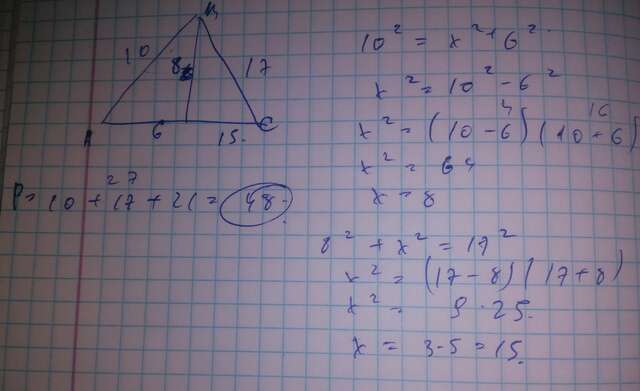 10 8 17
A 6 15. C
27
P = 10 + 17 + 21 = 48.
10² = x² + 6²
x² = 10² - 6²
4 16
x² = (10 - 6) (10 + 6)
x² = 64
x = 8
8² + x² = 17²
x² = (17 - 8) (17 + 8)
x² = 9 · 25.
x = 3 · 5 = 15.